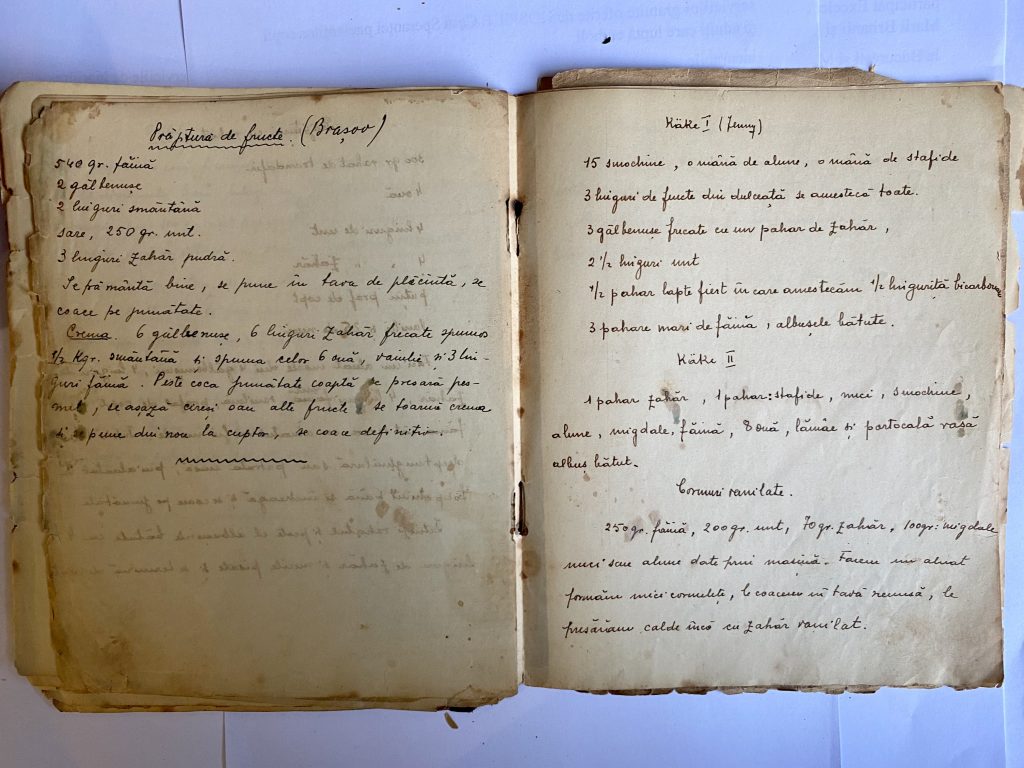 Prăptură de fructe: (Brașov)
540 gr. făină
2 gălbenușe
2 linguri smântână
sare, 250 gr. unt.
3 linguri zahăr pudră.
Se frământă bine, se pune în tava de plăcintă, se
coace pe jumătate.
Crema. 6 gălbenușe, 6 linguri zahăr frecate spumos
1/2 Kgr. smântână și spuma celor 6 ouă, vanilie și 3 lin-
guri făină. Peste coca jumătate coaptă se presară pes-
met, se așază cireși sau alte fructe se toarnă crema
și se pune din nou la cuptor, se coace definitiv.
Käke I (Jenny)
15 smochine, o mână de alune, o mână de stafide
3 linguri de fructe din dulceață se amestecă toate.
3 gălbenușe frecate cu un pahar de zahăr,
2 1/2 linguri unt
1/2 pahar lapte fiert în care amestecăm 1/2 linguriță bicarbonat
3 pahare mari de făină, albușele bătute.
Käke II
1 pahar zahăr, 1 pahar: stafide, nuci, smochine,
alune, migdale, făină, 8 ouă, lămâe și portocală rasă
albuș bătut.
Cornuri vanilate.
250 gr. făină, 200 gr. unt, 70 gr. zahăr, 100 gr: migdale
nuci sau alune date prin mașină. Facem un aluat
formăm mici cornulețe, le coacem în tavă neunsă, le
presărăm calde încă cu zahăr vanilat.